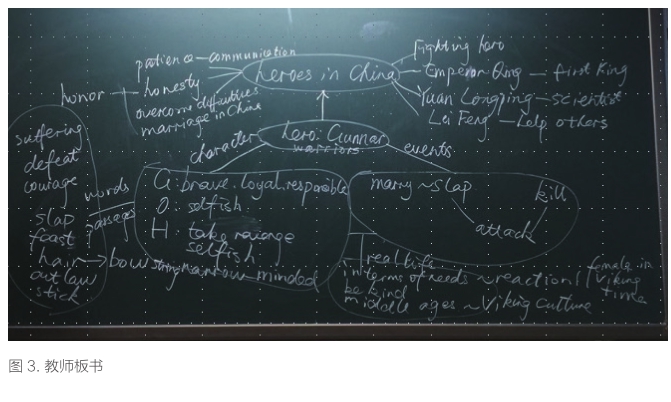 patience — communication
honor — honesty
overcome difficulties
marriage in China
heroes in China
Fighting hero
Emperor Qing — first King
Yuan Longping — scientist
Lei Feng — help others
character
hero: Gunnar
warriors
events
suffering
defeat
courage
slap
feast
hair → bow string
outlaw
stick
words
passages
G: brave. loyal. responsible
O: selfish
H: take revenge
selfish
narrow minded
marry ~ slap
kill
attack
real life
in terms of needs ~ reaction
be kind
middle ages ~ Viking culture
female in
Viking
time
图 3. 教师板书